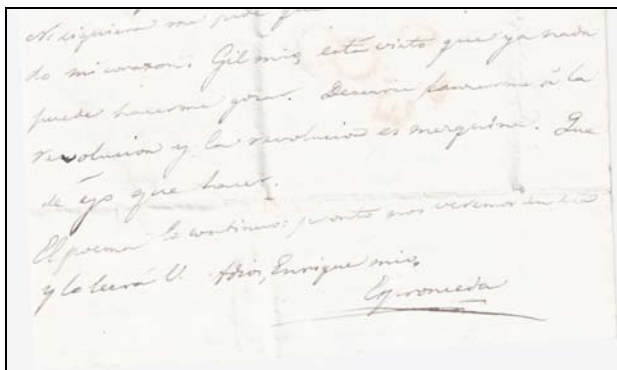 Ni siquiera me pude
do mi corazon. Gil mio, está visto que ya nada
puede hacerme gozar. Deseria lanzarme á la
revolucion y la revolucion es mezquina. Que
de yo que hacer.
El poema lo continuo: pronto nos veremos en esa
y lo leerá V. Adios, Enrique mio,
Espronceda